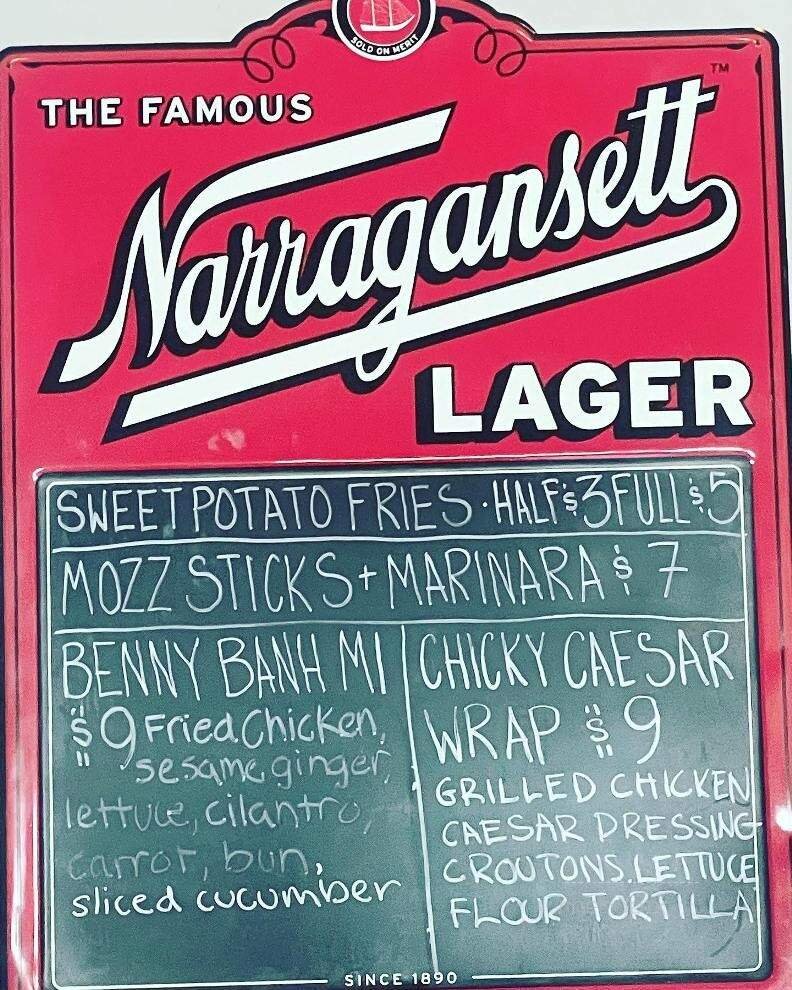 SOLD ON MERIT
THE FAMOUS
TM
Narragansett
LAGER
SWEET POTATO FRIES · HALF $3 FULL $5
MOZZ STICKS + MARINARA $7
BENNY BANH MI
$9 Fried Chicken,
sesame ginger,
lettuce, cilantro,
carrot, bun,
sliced cucumber
CHICKY CAESAR
WRAP $9
GRILLED CHICKEN
CAESAR DRESSING
CROUTONS. LETTUCE
FLOUR TORTILLA
SINCE 1890